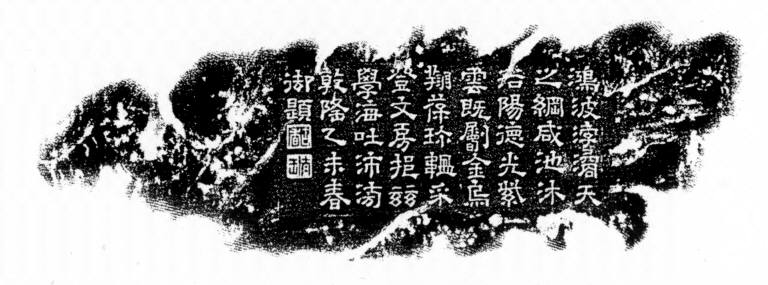 鴻波渟滀天
之綱咸池沐
浴陽德光紫
雲既劚金烏
翔葆珍韞采
登文房挹茲
學海吐沛滂
乾隆乙未春
御題